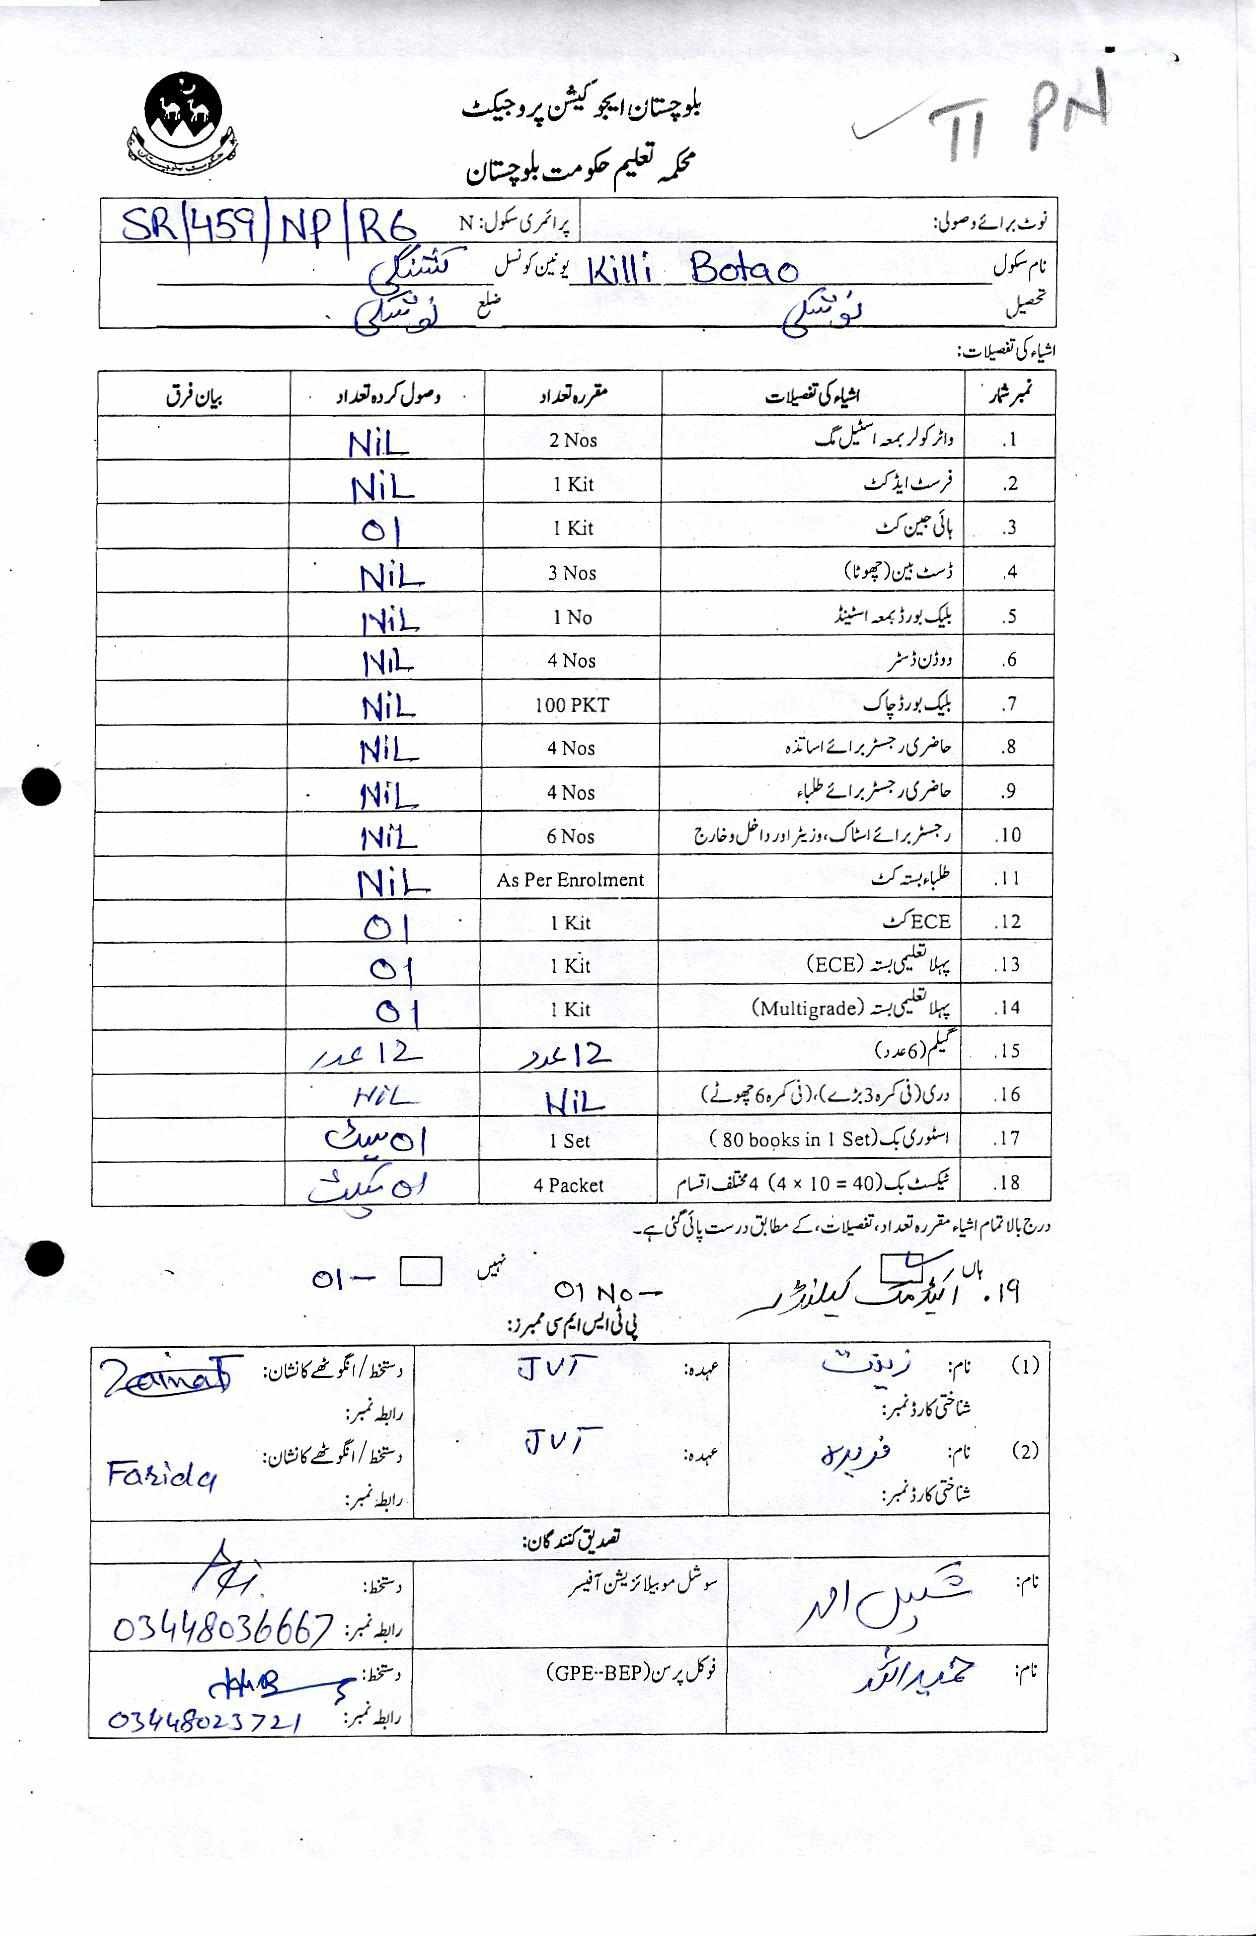 TI PN
بلوچستان ایجوکیشن پروجیکٹ
محکمہ تعلیم حکومت بلوچستان
حکومت بلوچستان
نوٹ برائے وصولی: پرائمری سکول: N SR/459/NP/R6
نام سکول Killi Botao یونین کونسل کشنگی
تحصیل نوشکی ضلع نوشکی
اشیاء کی تفصیلات:
نمبر شمار اشیاء کی تفصیلات مقررہ تعداد وصول کردہ تعداد بیان فرق
.1 واٹر کولر بمعہ اسٹیل مگ 2 Nos NiL
.2 فرسٹ ایڈ کٹ 1 Kit NiL
.3 ہائی جین کٹ 1 Kit 01
.4 ڈسٹ بین (چھوٹا) 3 Nos NiL
.5 بلیک بورڈ بمعہ اسٹینڈ 1 No NiL
.6 ووڈن ڈسٹر 4 Nos NiL
.7 بلیک بورڈ چاک 100 PKT NiL
.8 حاضری رجسٹر برائے اساتذہ 4 Nos NiL
.9 حاضری رجسٹر برائے طلباء 4 Nos NiL
.10 رجسٹر برائے اسٹاک، وزیٹر اور داخل و خارج 6 Nos NiL
.11 طلباء بستہ کٹ As Per Enrolment NiL
.12 ECE کٹ 1 Kit 01
.13 پہلا تعلیمی بستہ (ECE) 1 Kit 01
.14 پہلا تعلیمی بستہ (Multigrade) 1 Kit 01
.15 گیلم (6 عدد) 12 عدد 12 عدد
.16 دری (فی کمرہ 3 بڑے)، (فی کمرہ 6 چھوٹے) NiL NiL
.17 اسٹوری بک (80 books in 1 Set) 1 Set 01 سیٹ
.18 ٹیکسٹ بک (4 × 10 = 40) 4 مختلف اقسام 4 Packet 01 پیکٹ
درج بالا تمام اشیاء مقررہ تعداد، تفصیلات، کے مطابق درست پائی گئی ہے۔
ہاں نہیں
۱۹. اکیڈمک کیلنڈر 01 No – 01 –
پی ٹی ایس ایم سی ممبرز:
(1) نام: زینت عہدہ: JVT دستخط/انگوٹھے کا نشان: Zainab
شناختی کارڈ نمبر: رابطہ نمبر:
(2) نام: فریدہ عہدہ: JVT دستخط/انگوٹھے کا نشان: Farida
شناختی کارڈ نمبر: رابطہ نمبر:
تصدیق کنندگان:
نام: شکیل احمد سوشل موبیلائزیشن آفیسر دستخط:
رابطہ نمبر: 03448036667
نام: حمید اللہ فوکل پرسن (GPE--BEP) دستخط:
رابطہ نمبر: 03448023721